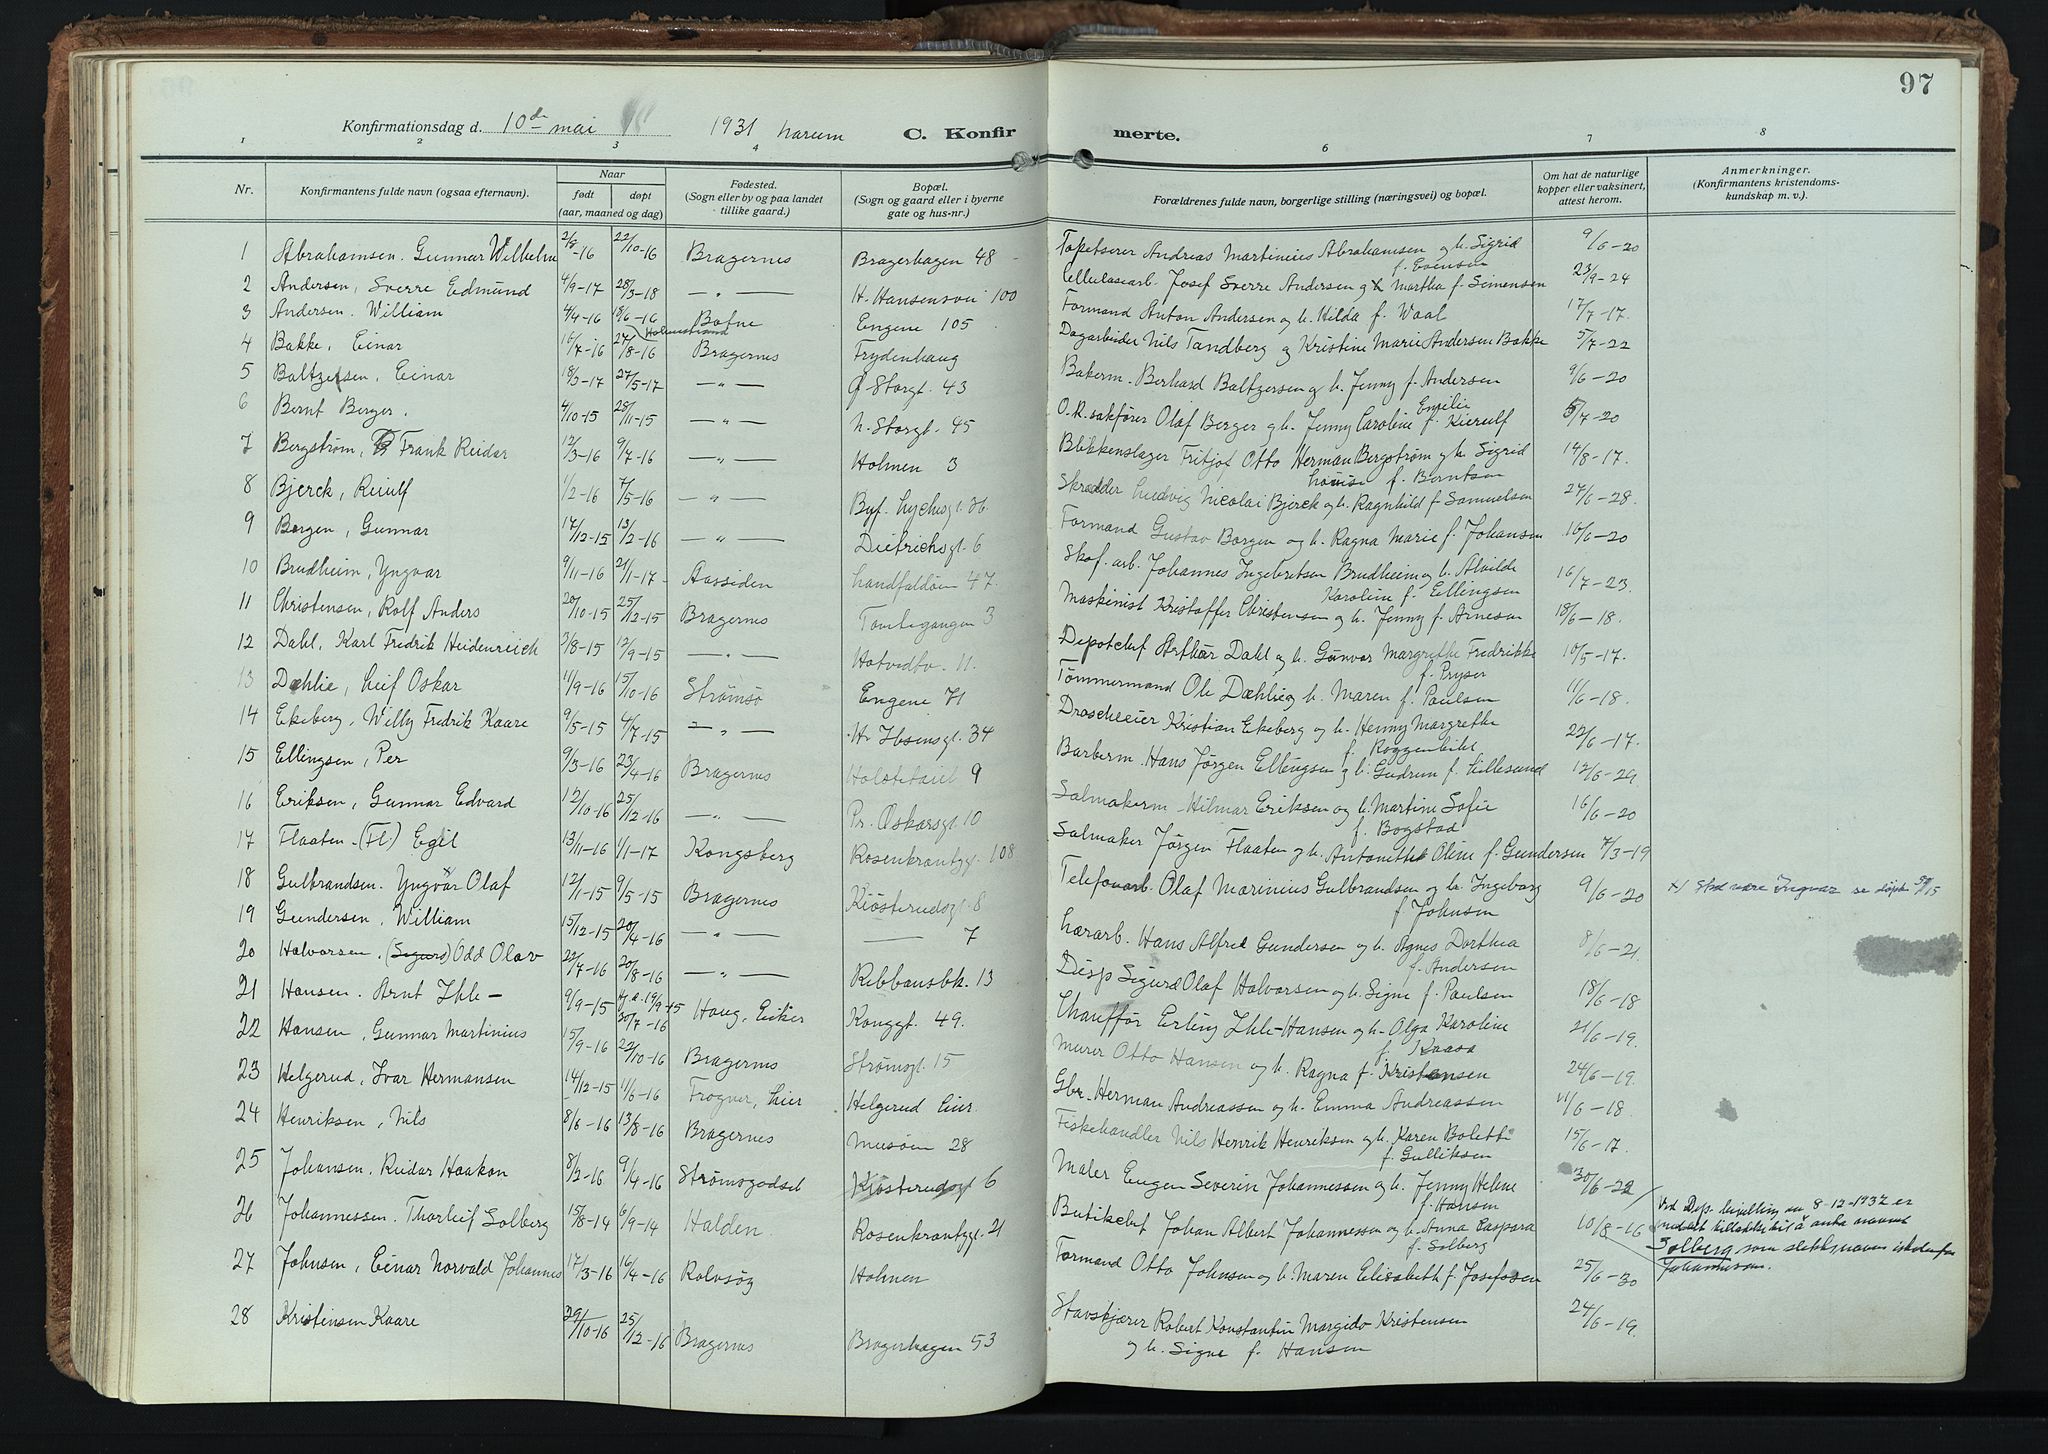 97
Konfirmationsdag d. 10de mai 1931
C. Konfirmerte.
1 2 3 4 6 7 8
Nr.
Konfirmantens fulde navn (ogsaa efternavn).
Naar
født
døpt
(aar, maaned og dag)
Fødested.
(Sogn eller by og paa landet
tillike gaard.)
Bopæl.
(Sogn og gaard eller i byerne
gate og hus-nr.)
Forældrenes fulde navn, borgerlige stilling (næringsvei) og bopæl.
Om hat de naturlige
kopper eller vaksinert,
attest herom.
Anmerkninger.
(Konfirmantens kristendoms-
kundskap m. v.).
1 Abrahamsen. Gunnar Wilhelm 2/8-16 22/10-16 Bragernes Bragerhagen 48 Tapetserer Andreas Martinius Abrahamsen og h. Sigrid f. Evensen 9/6-20
2 Andersen, Sverre Edmund 4/9-17 28/3-18 — " — H. Hansensvei 100 Cellulosearb. Josef Sverre Andersen og Martha f. Simensen 23/9-24
3 Andersen. William 4/4-16 18/6-16 Botne Holmestrand Engene 105 Formand Anton Andersen og h. Hilda f. Waal 17/7-17.
4 Bakke, Einar 16/7-16 27/8-16 Bragernes Frydenhaug Dagarbeider Nils Tandberg og Kristine Marie Andersen Bakke 5/7-22
5 Baltzersen, Einar 18/3-17 27/5-17 — " — Ø Storgt. 43 Bakerm. Berhard Baltzersen og h. Jenny f. Andersen 9/6-20
6 Bernt Berger. 4/10-15 28/11-15 — " — N. Storgt. 45 O.R.sakfører Olaf Berger og h. Jenny Caroline Emilie f. Kierulf 5/7-20
7 Bergstrøm, Frank Reidar 12/3-16 9/7-16 — " — Holmen 3 Blikkenslager Fritjof Otto Herman Bergstrøm og h. Sigrid Louise f. Berntsen 14/8-17.
8 Bjerck, Reiulf 1/2-16 7/5-16 — " — Byf. Lychesgt. 36 Skredder Ludvig Nicolai Bjerck og h. Ragnhild f. Samuelsen 27/6-28.
9 Borgen, Gunnar 17/12-15 13/2-16 — " — Dietrichsgt. 6 Formand Gustav Borgen og h. Ragna Marie f. Johansen 10/6-20
10 Brudheim, Yngvar 9/11-16 21/1-17 Aassiden Landfaldøen 47. Skof. arb. Johannes Ingebretsen Brudheim og h. Alvilde Karoline f. Ellingsen 16/7-23.
11 Christensen, Rolf Anders 20/10-15 25/12-15 Bragernes Tomtegangen 3 Maskinist Kristoffer Christensen og h. Jenny f. Arnesen 18/6-18.
12 Dahl, Karl Fredrik Heidenreich 3/8-15 12/9-15 — " — Hotvedtv. 11. Depotchef Arthur Dahl og h. Gunvor Margrethe Fredrikke f. Pryser 10/5-17.
13 Dæhlie, Leif Oskar 11/9-16 15/10-16 Strømsø Engene 71 Tømmermand Ole Dæhlie og h. Maren f. Paulsen 11/6-18.
14 Ekeberg, Willy Fredrik Kaare 9/5-15 4/7-15 — " — Hr Ibsensgt. 34 Droscheeier Kristian Ekeberg og h. Henny Margrethe f. Roggenbihl 22/6-17.
15 Ellingsen, Per 9/3-16 23/4-16 Bragernes 9 Barberm. Hans Jørgen Ellingsen og h. Gudrun f. Lillesund 12/6-29
16 Eriksen, Gunnar Edvard 12/10-16 25/12-16 — " — Pr. Oskarsgt. 10 Salmakerm. Hilmar Eriksen og h. Martine Sofie f. Bogstad 16/6-20
17 Flaaten (Fl.) Egil 13/11-16 1/1-17 Kongsberg Rosenkrantzgt. 108 Salmaker Jørgen Flaaten og h. Antonette Oline f. Gundersen 7/3-19
18 Gulbrandsen. Yngvar Olaf 12/1-15 9/5-15 Bragernes Kiøsterudsgt. 8 Telefonarb. Olaf Marinius Gulbrandsen og h. Ingeborg f. Johnsen 9/6-20 x) skal være Ingvar se døpte 15
19 Gundersen, William 15/12-15 20/4-16 — " — — 7 Lærarb. Hans Alfred Gundersen og h. Agnes Dorthea f. Andersen 8/6-21
20 Halvorsen. (Sigurd) Odd Olav 22/7-16 20/8-16 — " — Ribbansbk. 13 Disp Sigurd Olaf Halvorsen og h. Signe f. Paulsen 18/6-18
21 Hansen. Arnt Ihle- 9/9-15 Hj.d. 19/9-15 30/7-16 Haug, Eiker Konggt. 49. Chauffør Erling Ihle-Hansen og h. Olga Karoline f. Kaasa 21/6-19.
22 Hansen, Gunnar Martinius 15/9-16 22/10-16 Bragernes Strømsgt. 15 Murer Otto Hansen og h. Ragna f. Kristensen 24/6-19.
23 Helgerud, Ivar Hermansen 14/12-15 11/6-16 Frogner, Lier Helgerud Lier Gbr. Herman Andreassen og h. Emma Andreassen 11/6-18.
24 Henriksen, Nils 8/6-16 13/8-16 Bragernes Musøen 28 Fiskehandler Nils Henrik Henriksen og h. Karen Bolette f. Gulliksen 15/6-17.
25 Johansen. Reidar Haakon 8/2-16 9/4-16 Strømsgodset Kiøsterudsgt 6 Maler Eugen Severin Johannessen og h. Jenny Helene f. Hansen 30/6-22
26 Johannessen. Thorleif Solberg 15/8-14 6/9-14 Halden. Rosenkrantzgt. 21 Butikchef Johan Albert Johannessen og h. Anna Caspara f. Solberg 10/8-16 Ved Dep. bevilling av 8-12-1932 er meddelt tilladelse til å anta navnet Solberg som slektsnavn istedenfor Johannessen.
27 Johnsen, Einar Norvald Johannes 17/3-16 16/4-16 Rolvsøy Holmen Formand Otto Johnsen og h. Maren Elisabeth f. Josefsen 25/6-30
28 Kristensen Kaare 29/10-16 25/12-16 Bragernes Bragerhagen 53 Stavskjærer Robert Konstantin Margido Kristensen og h. Signe f. Hansen 24/6-19.